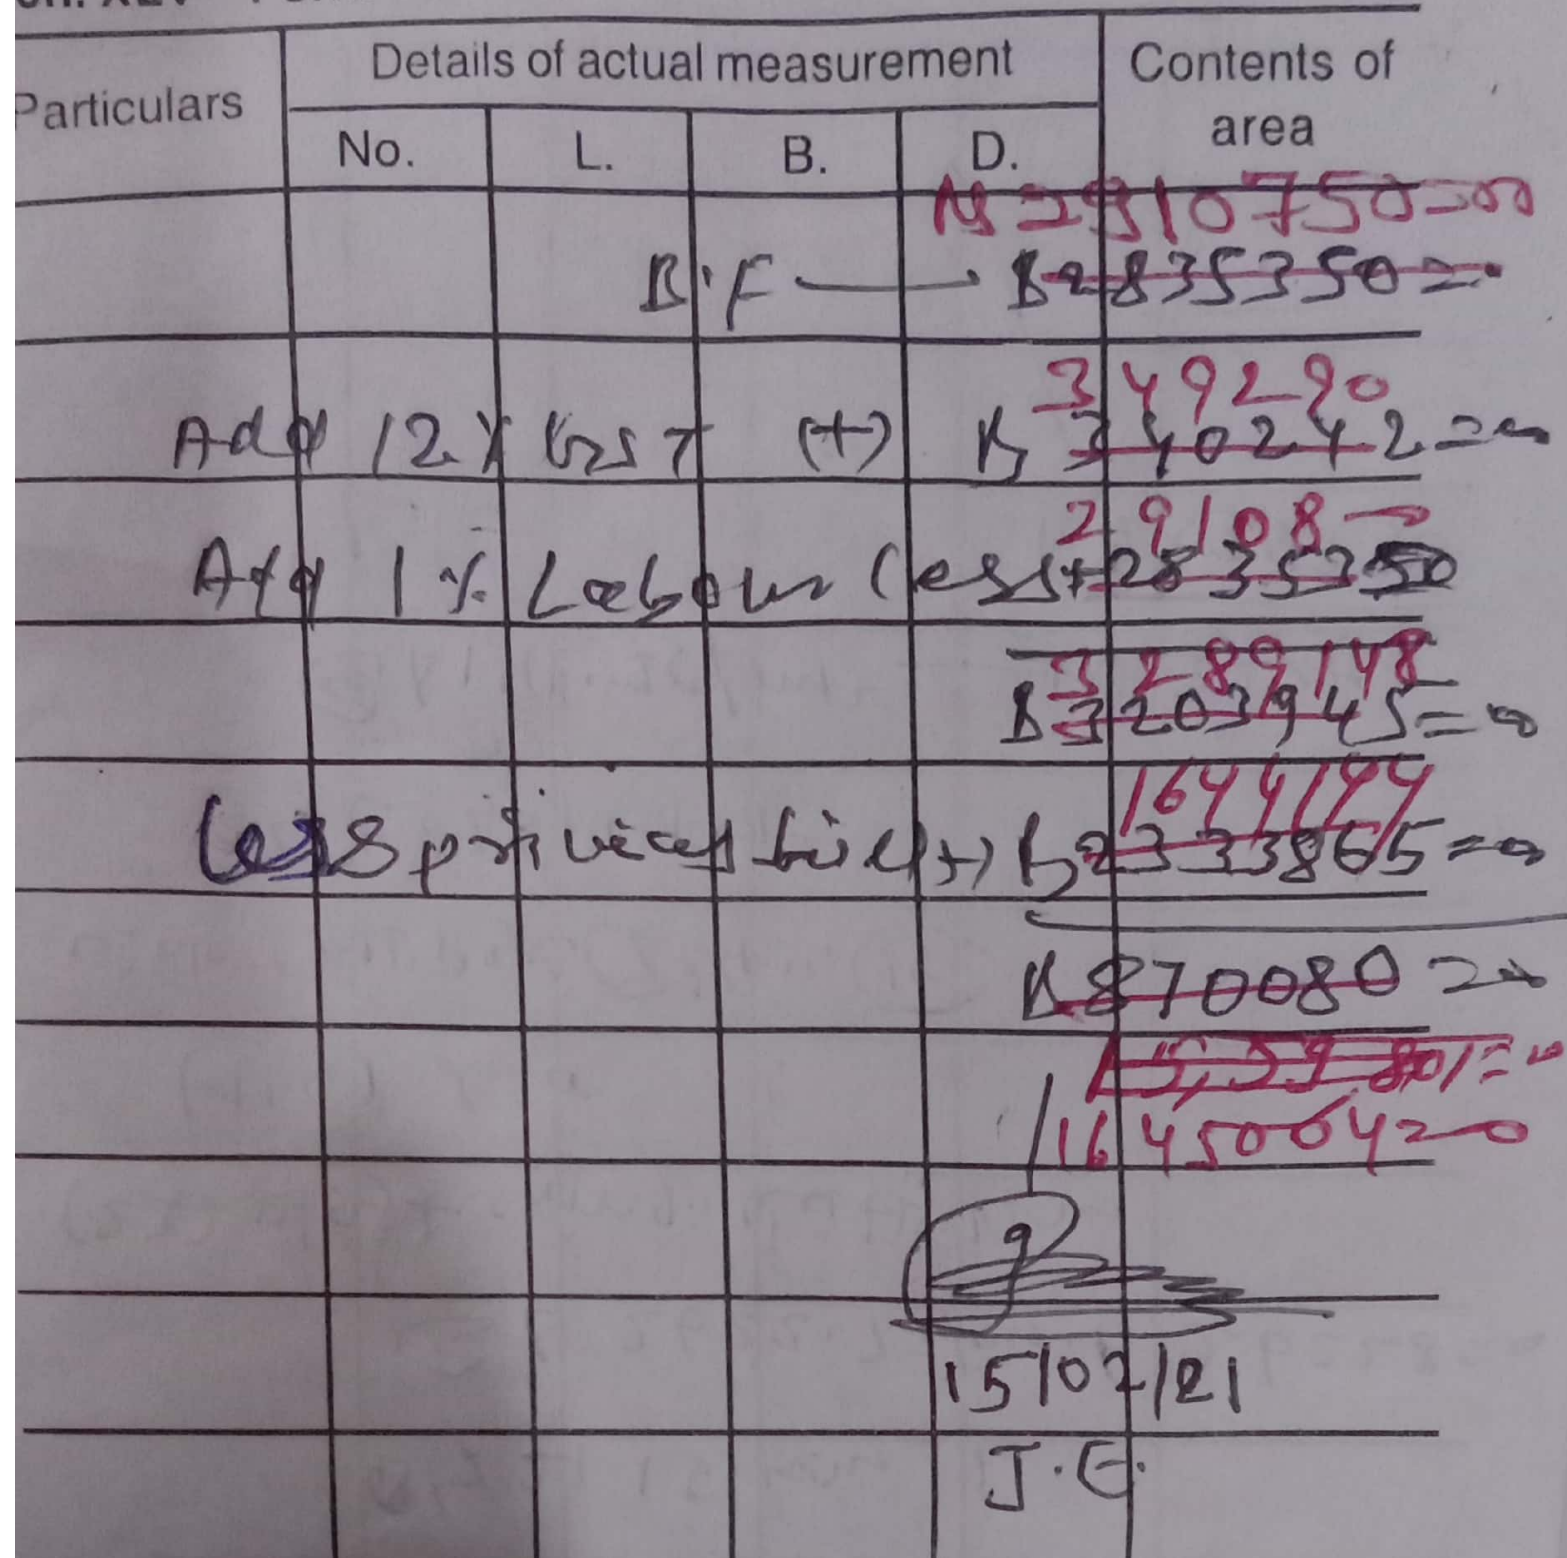 Particulars
Details of actual measurement
Contents of area
No. L. B. D.
Rs 2910750=00
B.F — Rs 2835350=00
349290
Add 12% GST (+) Rs 340242=00
29108=0
Add 1% Labour Cess + 28353.50
3289148
Rs 3203945=00
1644144
Less privious bill (-) Rs 2333865=00
Rs 870080=00
15,59,801=00
1645004=0
15/02/21
J.E.